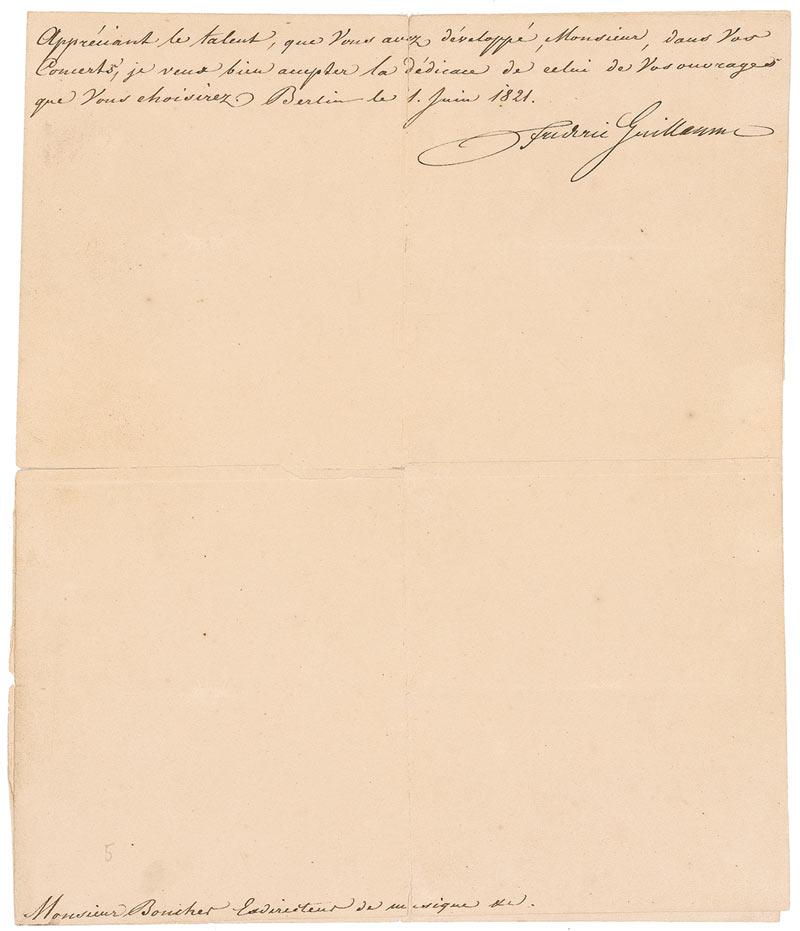 Appréciant le talent, que Vous avez développé, Monsieur, dans Vos
Concerts, je veux bien accepter la dédicace de celui de Vos ouvrages
que Vous choisirez. Berlin le 1. Juin 1821.
Frederic Guillaume
5
Monsieur Boucher Exdirecteur de musique &c.